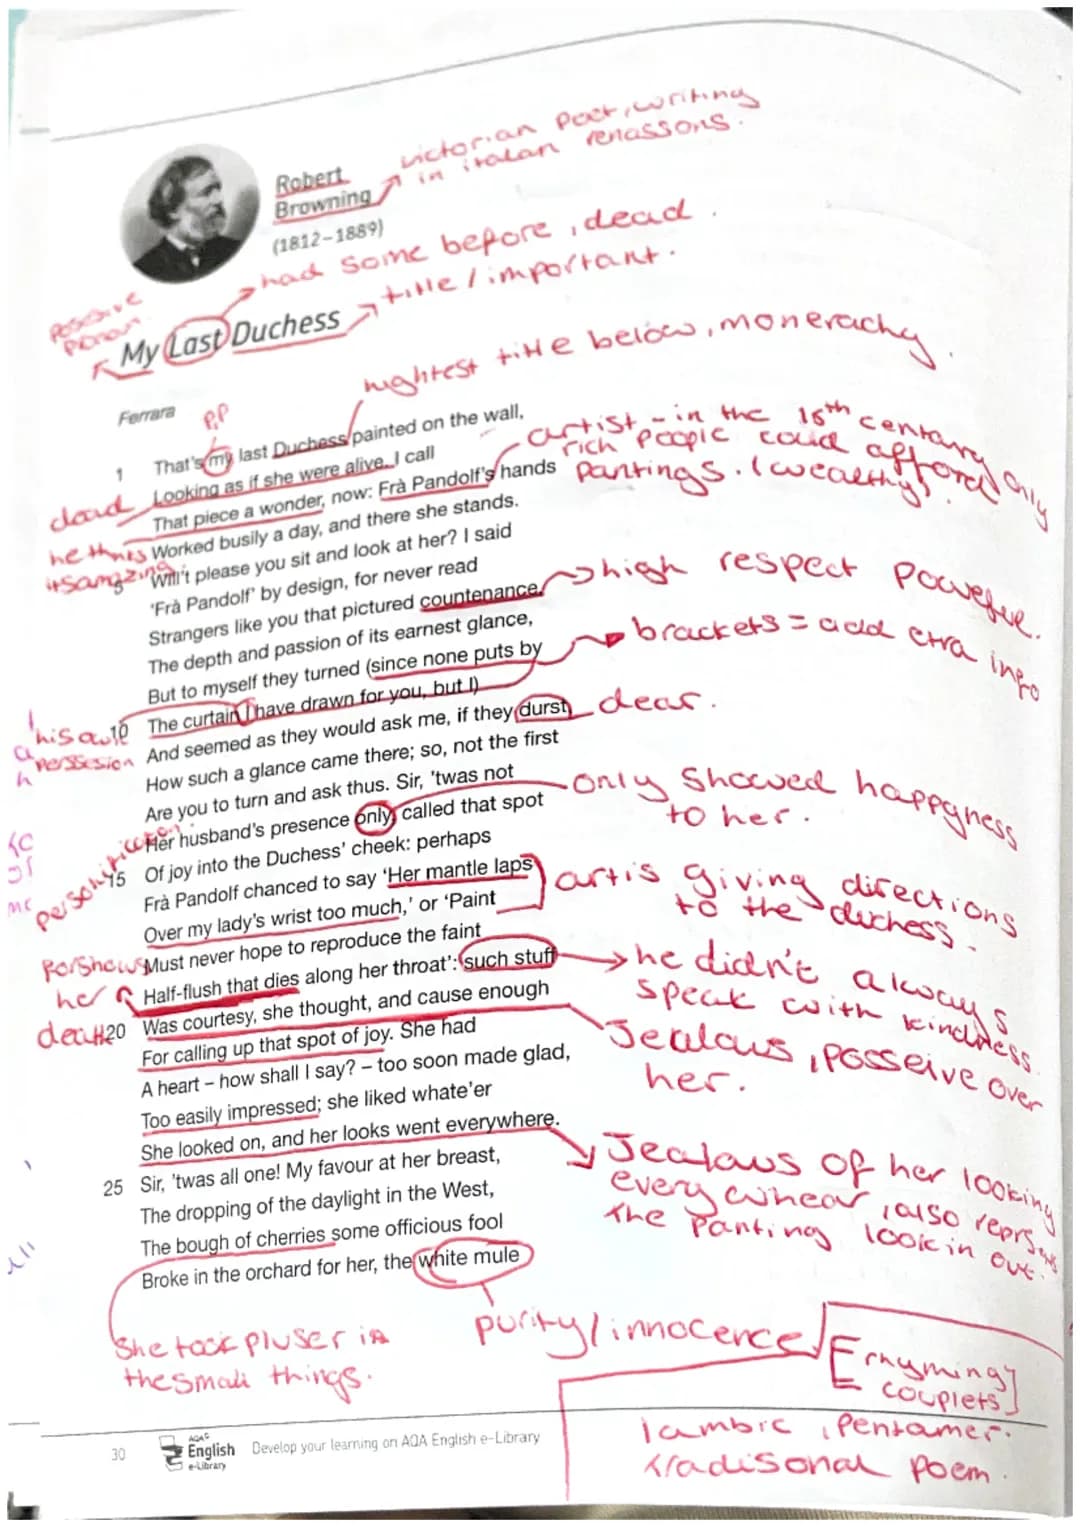 victorian poet, writing
in italan renassons.
Robert
Browning
(1812–1889)
had some before, dead.
title / important.
My Last Duchess
hightest title below, monerachy.
Ferrara
P.P
1 That's my last Duchess painted on the wall,
Looking as if she were alive. I call
dead
artist - in the 16th century only
rich people could afford
pantings. (wealthy)
That piece a wonder, now: Frà Pandolf's hands
he thnks
itsamazing
Worked busily a day, and there she stands.
5 Will't please you sit and look at her? I said
'Frà Pandolf' by design, for never read
Strangers like you that pictured countenance,
high respect powefue.
The depth and passion of its earnest glance,
But to myself they turned (since none puts by
brackets = add exra info
10 The curtain I have drawn for you, but I)
his own
perssesion
And seemed as they would ask me, if they durst,
dear.
How such a glance came there; so, not the first
Are you to turn and ask thus. Sir, 'twas not
only showed happyness
to her.
Her husband's presence only, called that spot
personification
15 Of joy into the Duchess' cheek: perhaps
Frà Pandolf chanced to say 'Her mantle laps
artis giving directions
to the duchess.
Over my lady's wrist too much,' or 'Paint
Must never hope to reproduce the faint
her
death
Half-flush that dies along her throat': such stuff
he didn't always
speak with kindness.
20 Was courtesy, she thought, and cause enough
Jealous, posseive over
her.
For calling up that spot of joy. She had
A heart – how shall I say? – too soon made glad,
Too easily impressed; she liked whate'er
She looked on, and her looks went everywhere.
Jealous of her looking
every whear, also reprsents
the panting look in out.
25 Sir, 'twas all one! My favour at her breast,
The dropping of the daylight in the West,
The bough of cherries some officious fool
Broke in the orchard for her, the white mule
She took pluser in
the small things.
purity / innocence
[rhyming
couplets]
Iambic, pentamer.
tradisonal poem.
30 AQA English e-Library Develop your learning on AQA English e-Library